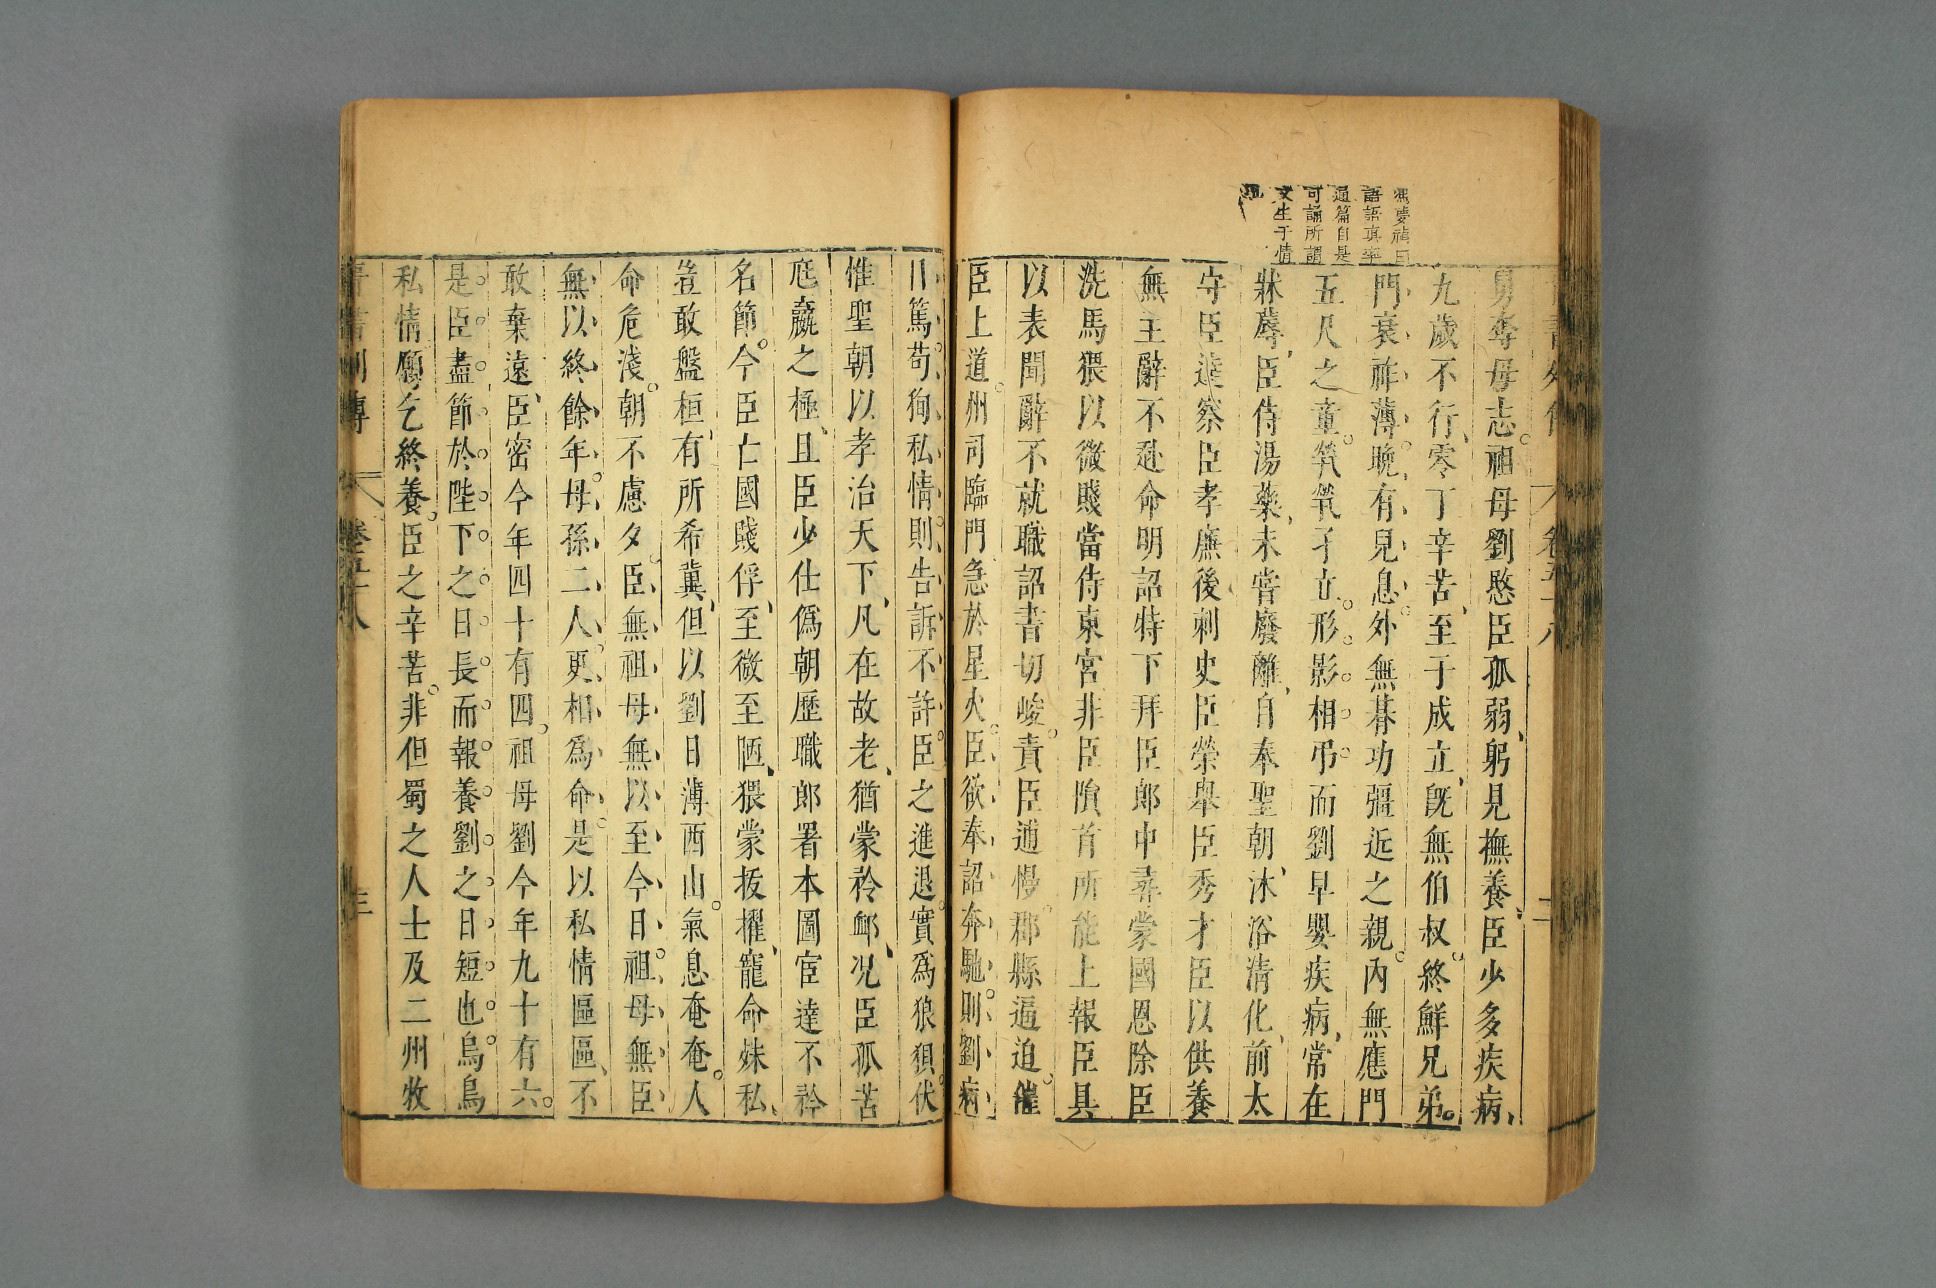 馮夢禎曰
語語真率
通篇自是
可誦所謂
文生于情
舅奪母志祖母劉愍臣孤弱躬見撫養臣少多疾病
九歲不行零丁辛苦至于成立旣無伯叔終鮮兄弟
門衰祚薄晚有兒息外無朞功彊近之親內無應門
五尺之童煢煢孑立形影相弔而劉早嬰疾病常在
牀蓐臣侍湯藥未嘗廢離自奉聖朝沐浴清化前太
守臣逵察臣孝廉後刺史臣榮舉臣秀才臣以供養
無主辭不赴命明詔特下拜臣郎中尋蒙國恩除臣
洗馬猥以微賤當侍東宮非臣隕首所能上報臣具
以表聞辭不就職詔書切峻責臣逋慢郡縣逼迫催
臣上道州司臨門急於星火臣欲奉詔奔馳則劉病
日篤苟狥私情則告訴不許臣之進退實爲狼狽伏
惟聖朝以孝治天下凡在故老猶蒙矜卹況臣孤苦
尫羸之極且臣少仕僞朝歷職郎署本圖宦達不矜
名節今臣亡國賤俘至微至陋猥蒙拔擢寵命殊私
豈敢盤桓有所希冀但以劉日薄西山氣息奄奄人
命危淺朝不慮夕臣無祖母無以至今日祖母無臣
無以終餘年母孫二人更相爲命是以私情區區不
敢棄遠臣密今年四十有四祖母劉今年九十有六
是臣盡節於陛下之日長而報養劉之日短也烏鳥
私情願乞終養臣之辛苦非但蜀之人士及二州牧
晉書列傳 卷五十八 三